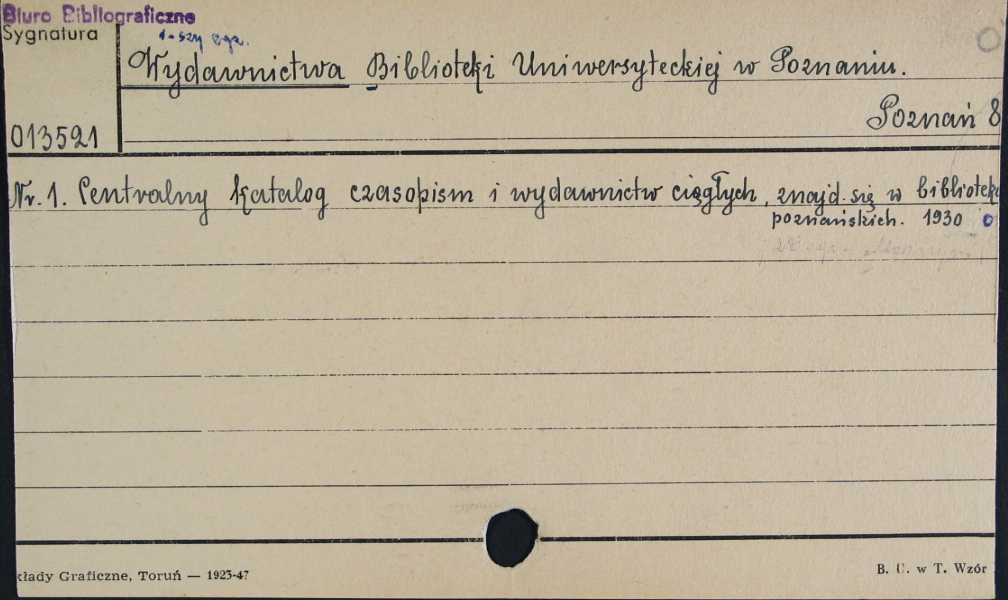 Biuro Bibliograficzne
Sygnatura
1-szy egz.
Wydawnictwa Biblioteki Uniwersyteckiej w Poznaniu.
Poznań 8
013521
Nr. 1. Centralny katalog czasopism i wydawnictw ciągłych, znajd. się w bibliotek
poznańskich. 1930
kłady Graficzne, Toruń — 1923-47
B. U. w T. Wzór